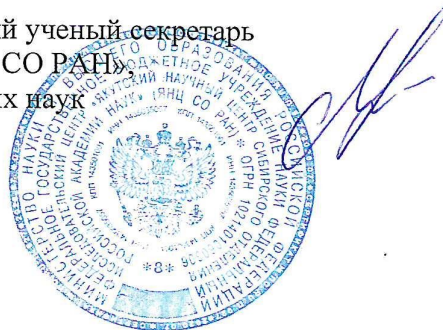 й ученый секретарь
СО РАН»,
их наук
МИНИСТЕРСТВО НАУКИ И ВЫСШЕГО ОБРАЗОВАНИЯ РОССИЙСКОЙ ФЕДЕРАЦИИ
ФЕДЕРАЛЬНОЕ ГОСУДАРСТВЕННОЕ БЮДЖЕТНОЕ УЧРЕЖДЕНИЕ НАУКИ ФЕДЕРАЛЬНЫЙ
ИССЛЕДОВАТЕЛЬСКИЙ ЦЕНТР «ЯКУТСКИЙ НАУЧНЫЙ ЦЕНТР СИБИРСКОГО ОТДЕЛЕНИЯ
РОССИЙСКОЙ АКАДЕМИИ НАУК» (ЯНЦ СО РАН) * ОГРН
*8*